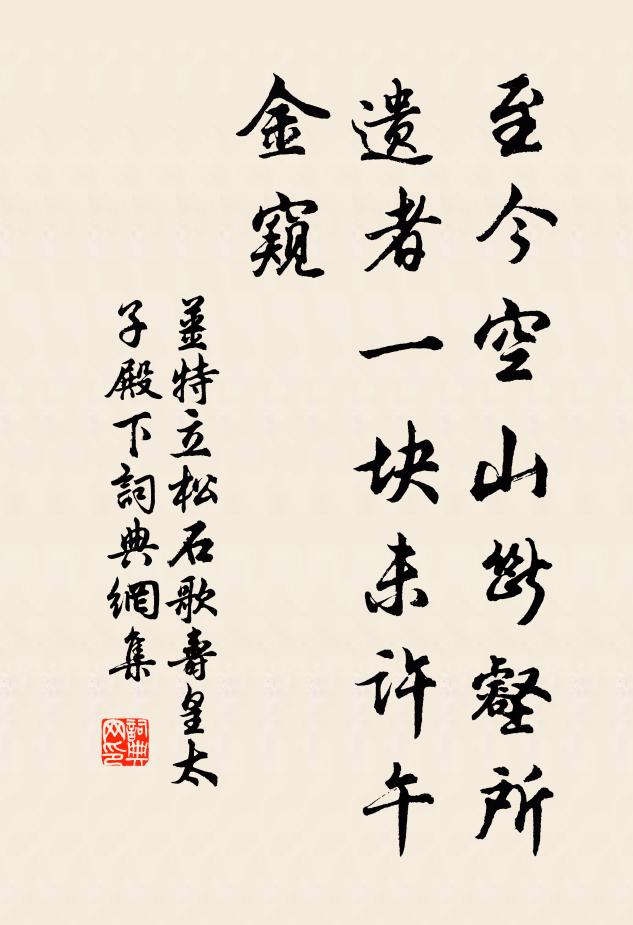 至今空山斷壑所
遗者一块未許午
金窺
薑特立松石歌壽皇太
子殿下詞典網集
詞典网印